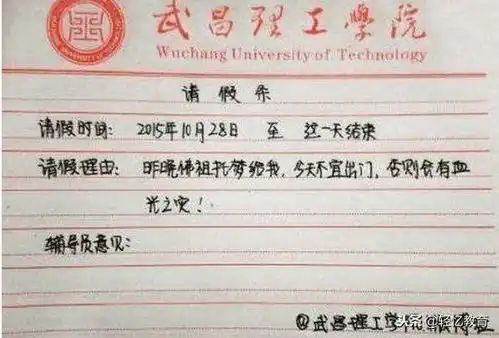 武昌理工學院
Wuchang University of Technology
请假条
请假时间：2015年10月28日 至 这一天结束
请假理由：昨晚佛祖托梦给我，今天不宜出门，否则会有血
光之灾！
辅导员意见：
@武昌理工学
头条 @轻忆教育